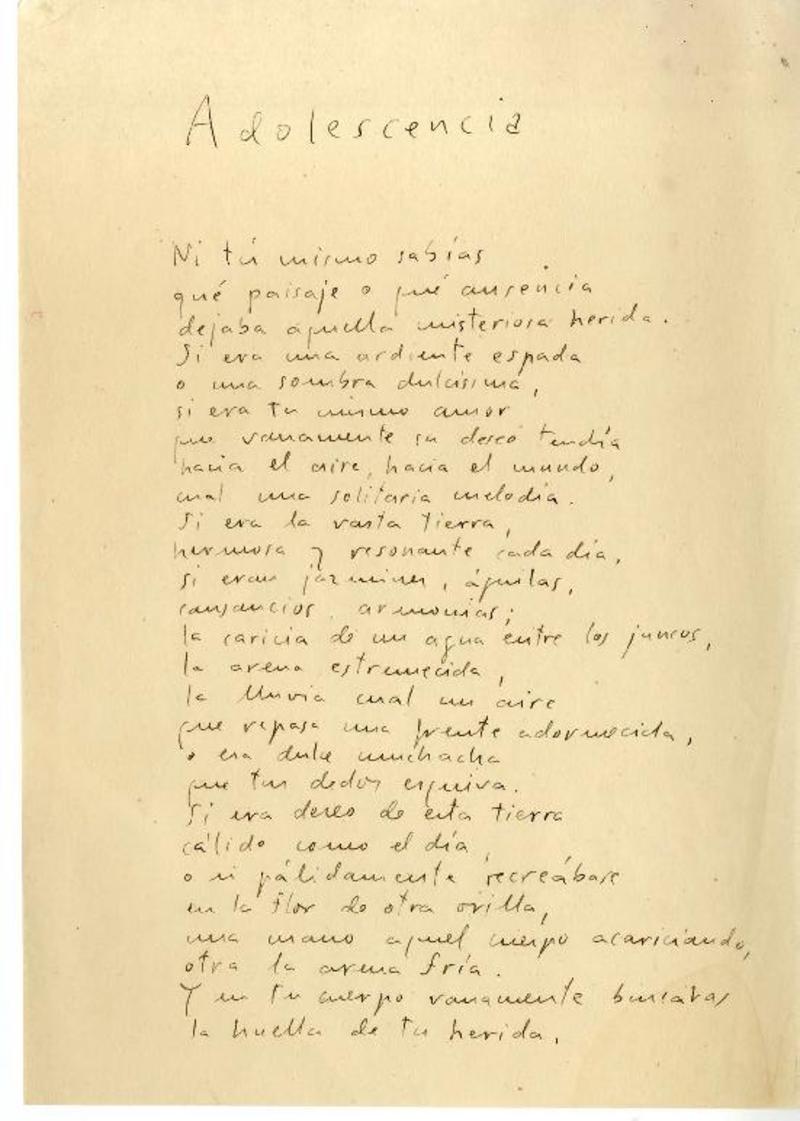 Adolescencia
Ni tú mismo sabías
qué paisaje o qué ausencia
dejaba aquella misteriosa herida.
Si era una ardiente espada
o una sombra dulcísima,
si era tu mismo amor
que vanamente su deseo tendía
hacia el aire, hacia el mundo,
cual una solitaria melodía.
Si era la vasta tierra,
hermosa y resonante cada día,
si eran jazmines, águilas,
cansancios, armonías;
la caricia de un agua entre los juncos,
la arena estremecida,
la lluvia cual un aire
que repasa una frente adormecida,
o esa dulce muchacha
que tus dedos esquiva.
Si era deseo de esta tierra
cálido como el día,
o si pálidamente recreábase
en la flor de otra orilla,
una mano aquel cuerpo acariciando,
otra la arena fría.
Y en tu cuerpo vanamente buscabas
la huella de tu herida.